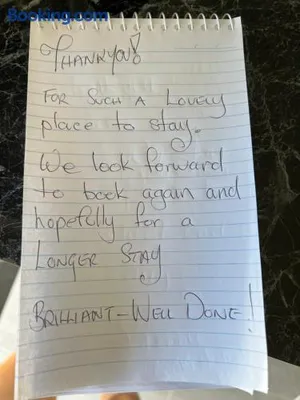 Booking.com
THANKYOU!
FOR SUCH A LOVELY
place to stay.
We look forward
to book again and
hopefully for a
LONGER STAY
BRILLIANT - WELL DONE!